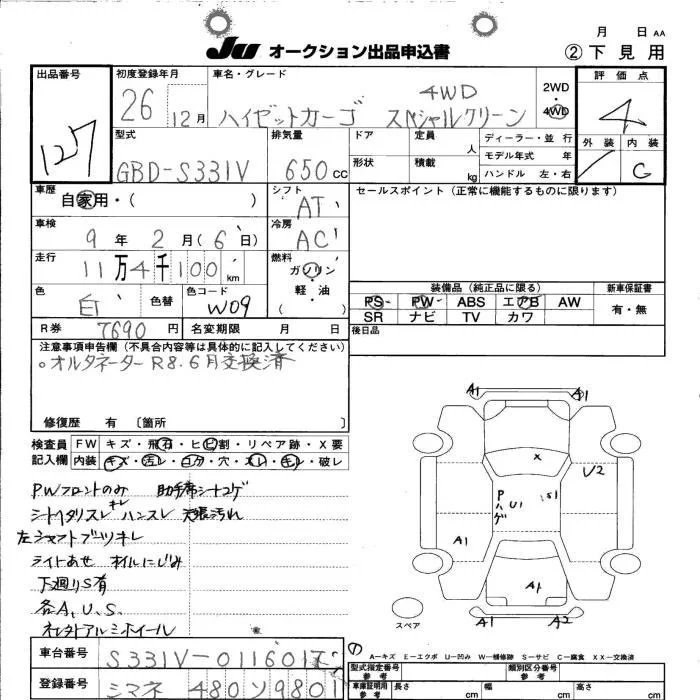 月 日 AA
JU オークション出品申込書
② 下見用
出品番号
127
初度登録年月
26 12月
車名・グレード
4WD
ハイゼットカーゴ スペシャルクリーン
2WD
4WD
評価点
4
外装 内装
C
型式
GBD-S331V
排気量
650 CC
ドア
形状
定員 人
積載 kg
ディーラー・並行
モデル年式 年
ハンドル 左・右
車歴
自家用・( )
シフト
AT
セールスポイント (正常に機能するものに限ります)
車検
9年2月(6日)
冷房
AC
走行
11万4千100 km
燃料
ガソリン
軽・油
( )
色
白
色替
色コード
W09
装備品 (純正品に限る)
PS PW ABS エアB AW
SR ナビ TV カワ
新車保証書
有・無
R券 7690円
名変期限 月 日
後日品
注意事項申告欄 (不具合内容等は具体的に記入してください)
○オルタネーターR8.6月交換済
修復歴 有 〔箇所 〕
検査員記入欄
FW キズ・飛石・ヒビ割・リペア跡・X要
内装 キズ・汚レ・コゲ・穴・スレ・キレ・破レ
PWフロントのみ 助手席シートコゲ
シートヘタリスレキレ ハンスレ 天張汚れ
左シャフトブーツキレ
ライトあせ オイルにじみ
下廻りS有
各A、U、S.
社外アルミホイール
A1 A1
X
U2
Pハゲ U1 S1
A1
A1
A1 A2
スペア
A―キズ E―エクボ U―凹み W―補修跡 S―サビ C―腐食 XX―交換済
車台番号
S331V-0116017
登録番号
シマネ 480 ソ 9801
型式指定番号
類別区分番号
車庫証明用
長さ cm
幅 cm
高さ cm